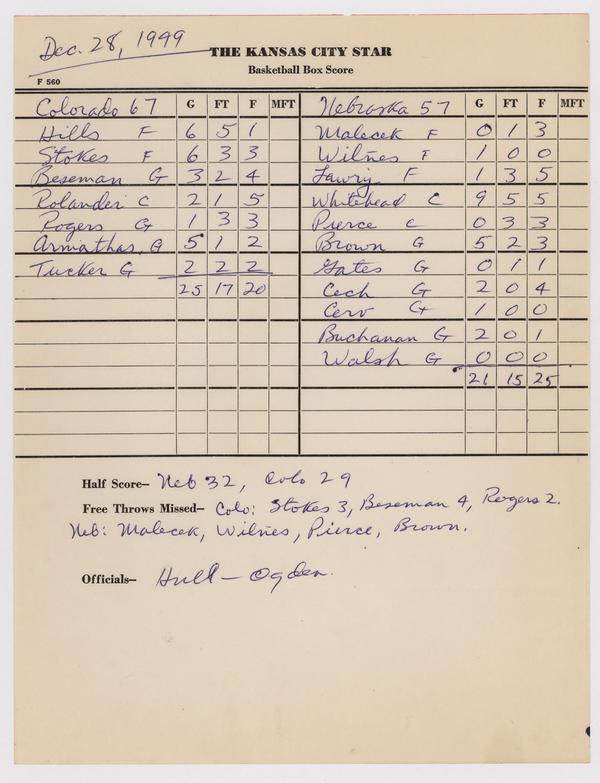 Dec. 28, 1949
THE KANSAS CITY STAR
Basketball Box Score
F 560
Colorado 67 G FT F MFT Nebraska 57 G FT F MFT
Hills F 6 5 1 Malecek F 0 1 3
Stokes F 6 3 3 Wilnes F 1 0 0
Beseman G 3 2 4 Lawry F 1 3 5
Rolander C 2 1 5 Whitehead C 9 5 5
Rogers G 1 3 3 Pierce C 0 3 3
Armathas G 5 1 2 Brown G 5 2 3
Tucker G 2 2 2 Gates G 0 1 1
25 17 20 Cech G 2 0 4
Cerv G 1 0 0
Buchanan G 2 0 1
Walsh G 0 0 0
21 15 25
Half Score– Neb 32, Colo 29
Free Throws Missed– Colo: Stokes 3, Beseman 4, Rogers 2.
Neb: Malecek, Wilnes, Pierce, Brown.
Officials– Hull – Ogden.